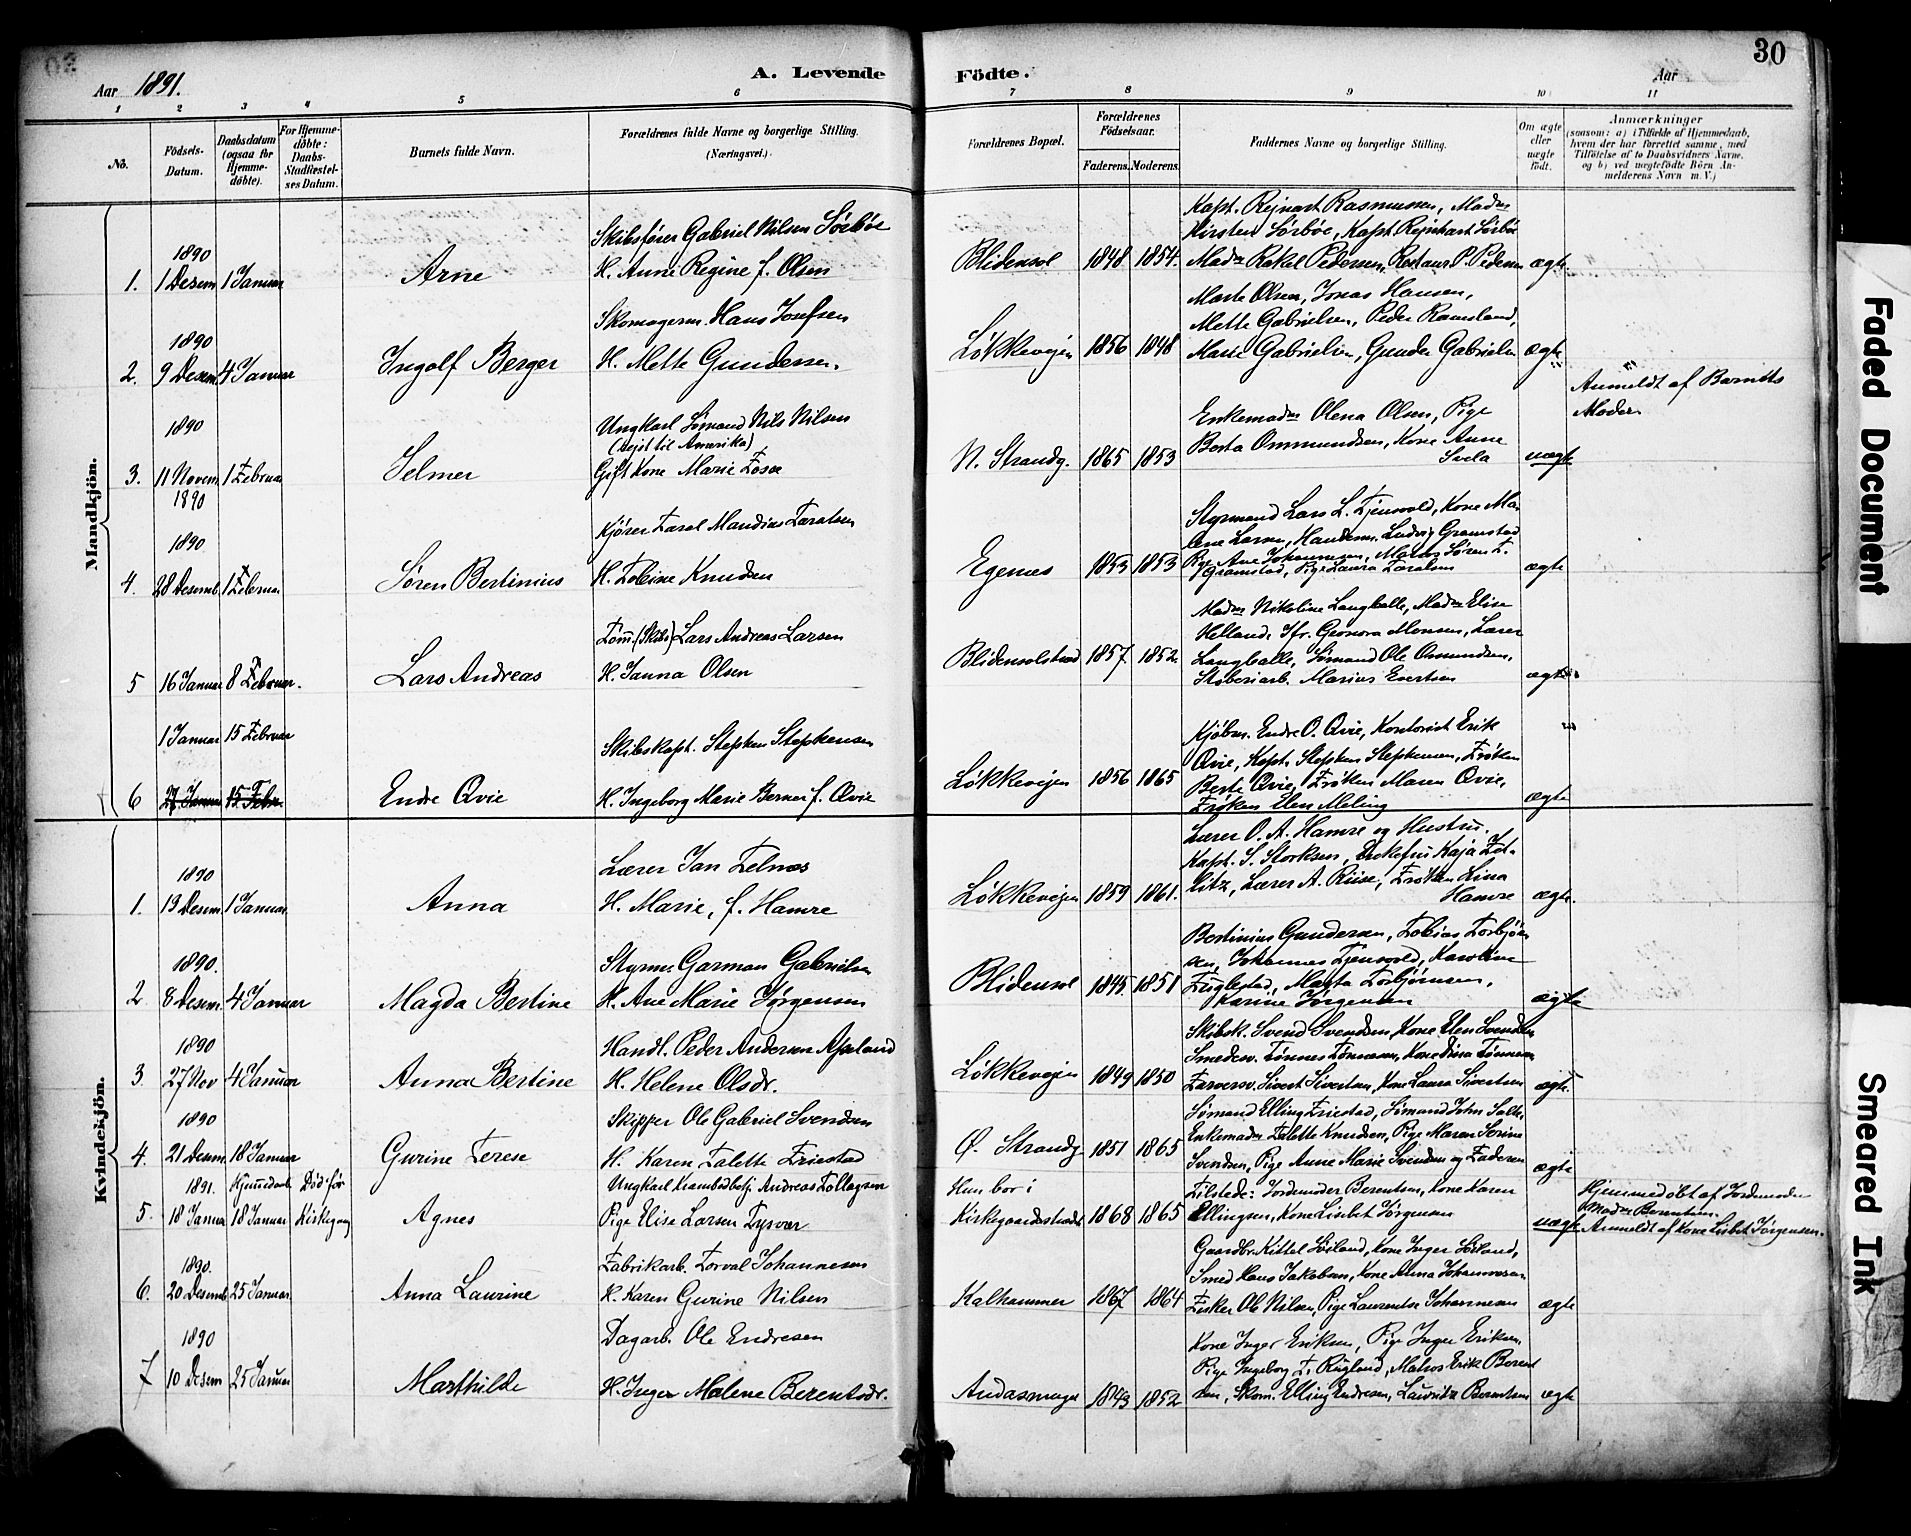 30
Aar 1891.
A. Levende Födte.
Aar
1 2 3 4 5 6 7 8 9 10 11
No.
Födsels-Datum.
Daabsdatum (ogsaa for Hjemme-døbte).
For Hjemme-døbte: Daabs-Stadfæstel-ses Datum.
Barnets fulde Navn.
Forældrenes fulde Navne og borgerlige Stilling. (Næringsvei.)
Forældrenes Bopæl.
Forældrenes Födselsaar.
Faderens. Moderens.
Faddernes Navne og borgerlige Stilling.
Om ægte eller uægte født.
Anmærkninger
(saasom: a) i Tilfælde af Hjemmedaab, hvem der har forrettet samme, med Tilföielse af to Daabsvidners Navne, og b) ved uægtefödte Börn An-melderens Navn m. V.)
Mandkjön.
1. 1890 1 Desem 1 Januar
Arne
Skibsfører Gabriel Nilsen Sörböe
H. Anne Regine f. Olsen
Blidensol 1848 1854
Kapt. Rejnart Rasmussen, Madm
Kirsten Sørbøe, Kapt Rejnhart Sørbö
Madm Rakel Pedersen, Restaur P. Pedersen
ægte
2. 1890 9 Desem 4 Januar
Ingolf Berger
Skomagerm. Hans Josefsen
H. Mette Gundersen.
Løkkevejen 1856 1848
Marte Olsen, Jonas Hansen,
Mette Gabrielsen, Peder Ramsland,
Marie Gabrielsen, Gunder Gabrielsen
ægte
3. 1890 11 Novem. 1890 1 Februar
Selmer
Ungkarl Sømand Nils Nilsen
(rejst til Amerika)
Gift Kone Marie Fosse
N. Strandg. 1865 1853
Enkemadm Olena Olsen, Pige
Berta Ommundsen, Kone Anne
Svela
uægte
Anmeldt af Barnets
Moder
4. 1890 28 Desemb 1 Februar
Søren Bertinius
Kjører Tarel Mandias Taralsen
H. Tobine Knudsen
Egenes 1853 1853
Styrmand Lars L. Tjensvold, Kone Ma-
lene Larsen, Handelsm. Ludvig Gramstad
Pige Ane Johannesen, Matros Søren T.
Gramstad, Pige Laura Taralsen
ægte
5 16 Januar 8 Februar.
Lars Andreas
Tøm. (Skibs) Lars Andreas Larsen
H. Janna Olsen
Blidensolstræd 1857 1852
Madm Nikoline Langballe, Madm Elise
Helland, Jfr. Geonora Monsen, Lærer
Langballe, Sømand Ole Omundsen,
Støberiarb. Marius Evertsen
ægte
6 1 Januar 15 Februar
27 Januar 15 Febr
Endre Qvie
Skibskapt. Stephen Stephensen
H. Ingeborg Marie Berner f. Qvie
Løkkevejen 1856 1865
Kjøbm. Endre O. Qvie, Kontorist Erik
Qvie, Kapt. Stephen Stephensen, Frøken
Berte Qvie, Frøken Maren Qvie,
Frøken Elen Meling
ægte
Kvindekjön.
1. 1890 19 Desem 1 Januar
Anna
Lærer Jan Telnæs
H. Marie, f. Hamre
Løkkevejen 1859 1861.
Lærer O. A. Hamre og Hustru.
Kapt. S. Storksen, Enkefru Kaja Fol-
litz, Lærer A. Riise, Frøken Lina
Hamre
ægte.
2 1890. 8 Desem. 4 Januar
Magda Bertine
Styrm. Garman Gabrielsen
H. Ane Marie Jørgensen
Blidensol 1845. 1851
Bertinius Gundersen, Tobias Torbjørn
sen, Johannes Tjensvold, Karoline
Fuglestad, Marta Torbjørnsen,
Karine Jørgensen
ægte
3. 1890 27 Nov 4 Januar
Anna Bertine
Handl. Peder Andersen Apeland
H. Helene Olsdr.
Løkkevejen 1849 1850
Skibsk. Svend Svendsen, Kone Elen Svendsen
Smedesv. Tønnes Tønnesen, Kone Dina Tønnesen
Farversv. Sivert Sivertsen, Kone Laura Sivertsen
ægte
4. 1890 21 Desem 18 Januar
Gurine Terese
Skipper Ole Gabriel Svendsen
H. Karen Talette Friestad
Ø. Strandg 1851 1865
Sømand Elling Friestad, Sømand John Salte,
Enkemadm Talette Knudsen, Pige Maren Serine
Svendsen, Pige Anne Marie Svendsen og Faderen
ægte
5. 1891. 18 Januar Hjemmedaab. 18 Januar Död før Kirkegang
Agnes
Ungkarl Krambodbetj. Andreas Tollagsen
Pige Elise Larsen Tysvær
Hun bor i
Kirkegaardsstrædet 1868 1865
Tilstede: Jordemoder Berentsen, Kone Karen
Ellingsen, Kone Lisbet Jørgensen
uægte
Hjemmedøbt af Jordemoder
Madm Berentsen.
Anmeldt af Kone Lisbet Jørgensen.
6. 1890. 20 Desemb 25 Januar.
Anna Laurine
Fabrikarb. Torval Johannesen
H. Karen Gurine Nilsen
Kalhammer 1867 1864
Gaardbr Kittel Soiland, Kone Inger Soiland,
Smed Hans Jakobsen, Kone Anna Johannesen
Fisker Ole Nilsen, Pige Laurentse Johannesen
ægte
7 1890 10 Desem 25 Januar
Marthilde
Dagarb. Ole Endresen
H. Inger Malene Berentsdr.
Andasmauet 1849 1852
Kone Inger Eriksen, Pige Inger Eriksen,
Pige Ingeborg T. Rugland, Matros Erik Berent
sen, Skom. Elling Endresen, Lauritze Berentsen
ægte
Faded Document
Smeared Ink